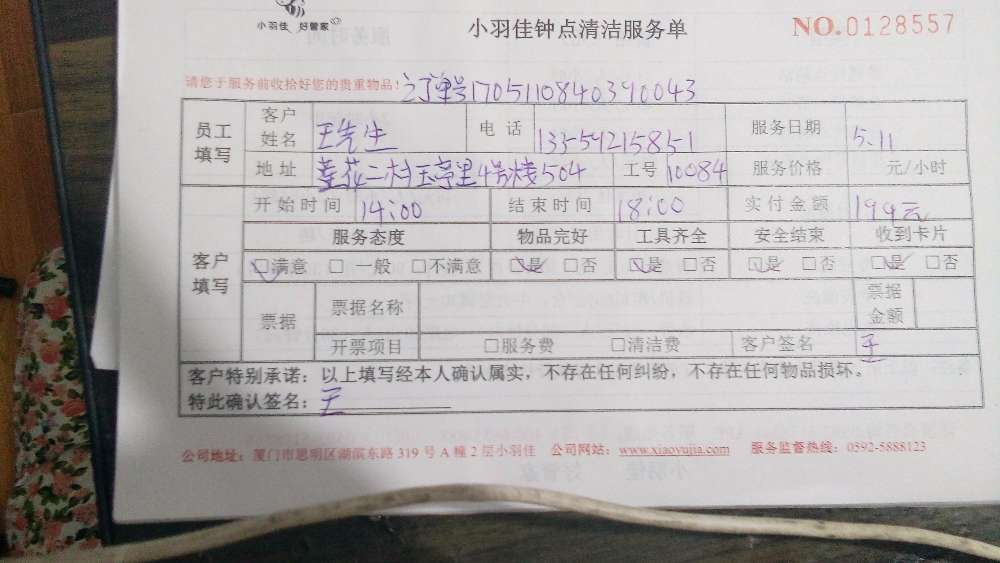 小羽佳 好管家
小羽佳钟点清洁服务单 NO.0128557
请您于服务前收拾好您的贵重物品! 订单号1705110840390043
员工填写 客户姓名 王先生 电话 13359215851 服务日期 5.11
地址 莲花二村玉亭里4号楼504 工号 10084 服务价格 元/小时
客户填写 开始时间 14:00 结束时间 18:00 实付金额 199元
服务态度 物品完好 工具齐全 安全结束 收到卡片
☑满意 □一般 □不满意 ☑是 □否 ☑是 □否 ☑是 □否 ☑是 □否
票据 票据名称 票据金额
开票项目 □服务费 □清洁费 客户签名 王
客户特别承诺:以上填写经本人确认属实,不存在任何纠纷,不存在任何物品损坏。
特此确认签名:王
公司地址:厦门市思明区湖滨东路319号A幢2层小羽佳 公司网站:www.xiaoyujia.com 服务监督热线:0592-5888123